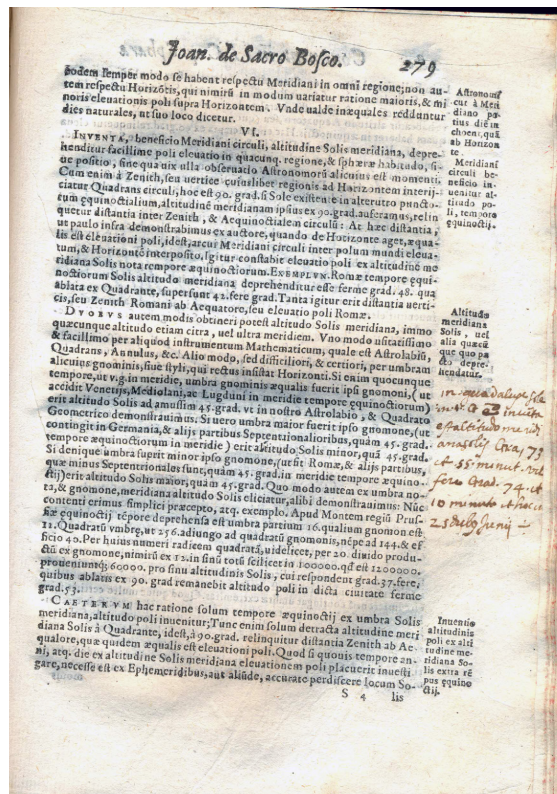 Joan. de Sacro Bosco. 279
eodem semper modo se habent respectu Meridiani in omni regione; non au-
tem respectu Horizõtis, qui nimirũ in modum uariatur ratione maioris, & mi
noris eleuationis poli supra Horizontem. Vnde ualde inæquales redduntur
dies naturales, ut suo loco dicetur.
VI.
INVENTA, beneficio Meridiani circuli, altitudine Solis meridiana, depre-
henditur facillime poli eleuatio in quacunq. regione, & sphæræ habitudo, si-
ue positio, sine qua nix ulla obseruatio Astronomorũ alicuius est momenti.
Cum enim à Zenith, seu uertice cuiuslibet regionis ad Horizontem interij-
ciatur Quadrans circuli, hoc est 90. grad. si Sole existente in alterutro puncto-
rum equinoctialium, altitudinẽ meridianam ipsius ex 90. grad. auferamus, relin
quetur distantia inter Zenith, & Acquinoctialem circulũ: At hæc distantia,
ut paulo infra demonstrabimus ex auctore, quando de Horizonte aget, æqua-
lis est eleuationi poli, idest, arcui Meridiani circuli inter polum mundi eleua-
tum, & Horizontẽ interposito, Igitur constabit eleuatio poli ex altitudine me
ridiana Solis nota tempore æquinoctiorum. EXEMPLVM. Romæ tempore equi-
noctiorum Solis altitudo meridiana deprehenditur esse ferme grad. 48. qua
ablata ex Quadrante, supersunt 42. fere grad. Tanta igitur erit distantia uerti-
cis, seu Zenith Romani ab Aequatore, seu eleuatio poli Romæ.
DVOBVS autem modis obtineri potest altitudo Solis meridiana, immo
quæcunque altitudo etiam citra, uel ultra meridiem. Vno modo usitatissimo
& facillimo per aliquod instrumentum Mathematicum, quale est Astrolabiũ,
Quadrans, Annulus, &c. Alio modo, sed difficiliori, & certiori, per umbram
alicuius gnominis, siue styli, qui rectus insistat Horizonti. Si enim quocunque
tempore, ut v.g. in meridie, umbra gnominis æqualis fuerit ipsi gnomoni, (ut
accidit Venetijs, Mediolani, ac Lugduni in meridie tempore equinoctiorum)
erit altitudo Solis ad amussim 45. grad. vt in nostro Astrolabio, & Quadrato
Geometrico demonstrauimus. Si uero umbra maior fuerit ipso gnomone, (ut
contingit in Germania, & alijs partibus Septentrionalioribus, quàm 45. grad.
tempore æquinoctiorum in meridie) erit altitudo Solis minor, quã 45. grad.
Si denique umbra fuprit minor ipso gnomone, (ut fit Romæ, & alijs partibus,
quæ minus Septentrionales sunt, quàm 45. grad. in meridie tempore æquino-
ctij) erit altitudo Solis maior, quàm 45. grad. Quo modo autem ex umbra no-
ta, & gnomone, meridiana altitudo Solis eliciatur, alibi demonstrauimus: Nũc
contenti erimus simplici præcepto, atq. exemplo. Apud Montem regiũ Prus-
siæ equinoctij tẽpore deprehensa est umbra partium 16. qualium gnomon est
12. Quadratũ vmbrę, ut 256. adiungo ad quadratũ gnomonis, nẽpe ad 144. & ef
ficio 40. Per huius numeri radicem quadratã, uidelicet, per 20. diuido produ-
ctũ ex gnomone, nimirũ ex 12. in sinũ totũ scilicet in 100000. qđ est 1200000.
proueniuntq; 60000. pro sinu altitudinis Solis, cui respondent grad. 37. fere,
quibus ablatis ex 90. grad remanebit altitudo poli in dicta ciuitate ferme
grad. 53.
CAETERVM hac ratione solum tempore æquinoctij ex umbra Solis
meridiana, altitudo poli inuenitur; Tunc enim solum detracta altitudine meri
diana Solis à Quadrante, idest, à 90. grad. relinquitur distantia Zenith ab Ae-
qualore, quæ quidem æqualis est eleuationi poli. Quod si quouis tempore an-
ni, atq. die ex altitudine Solis meridiana eleuationem poli placuerit inuesti-
gare, necesse est ex Ephemeridibus, aut aliúde, accurate perdiscere locum So-
S 4 lis
Astronomi
cur à Meri
diano po-
tius diẽ in
choent, quã
ab Horizon
te
Meridiani
circuli be-
neficio in-
uenitur al-
titudo po-
li, tempore
equinoctij.
Altitudo
meridiana
Solis, uel
alia quæcũ
que quo pa
cto depre-
hendatur.
est altitudo meridi
ana solis Gra, 73
et 55 minut. vel
fere Grad. 74. et
10 minuto
Junij
Inuentio
altitudinis
poli ex alti
tudine me-
ridiana So-
lis extra tẽ
pus equino
ctij.